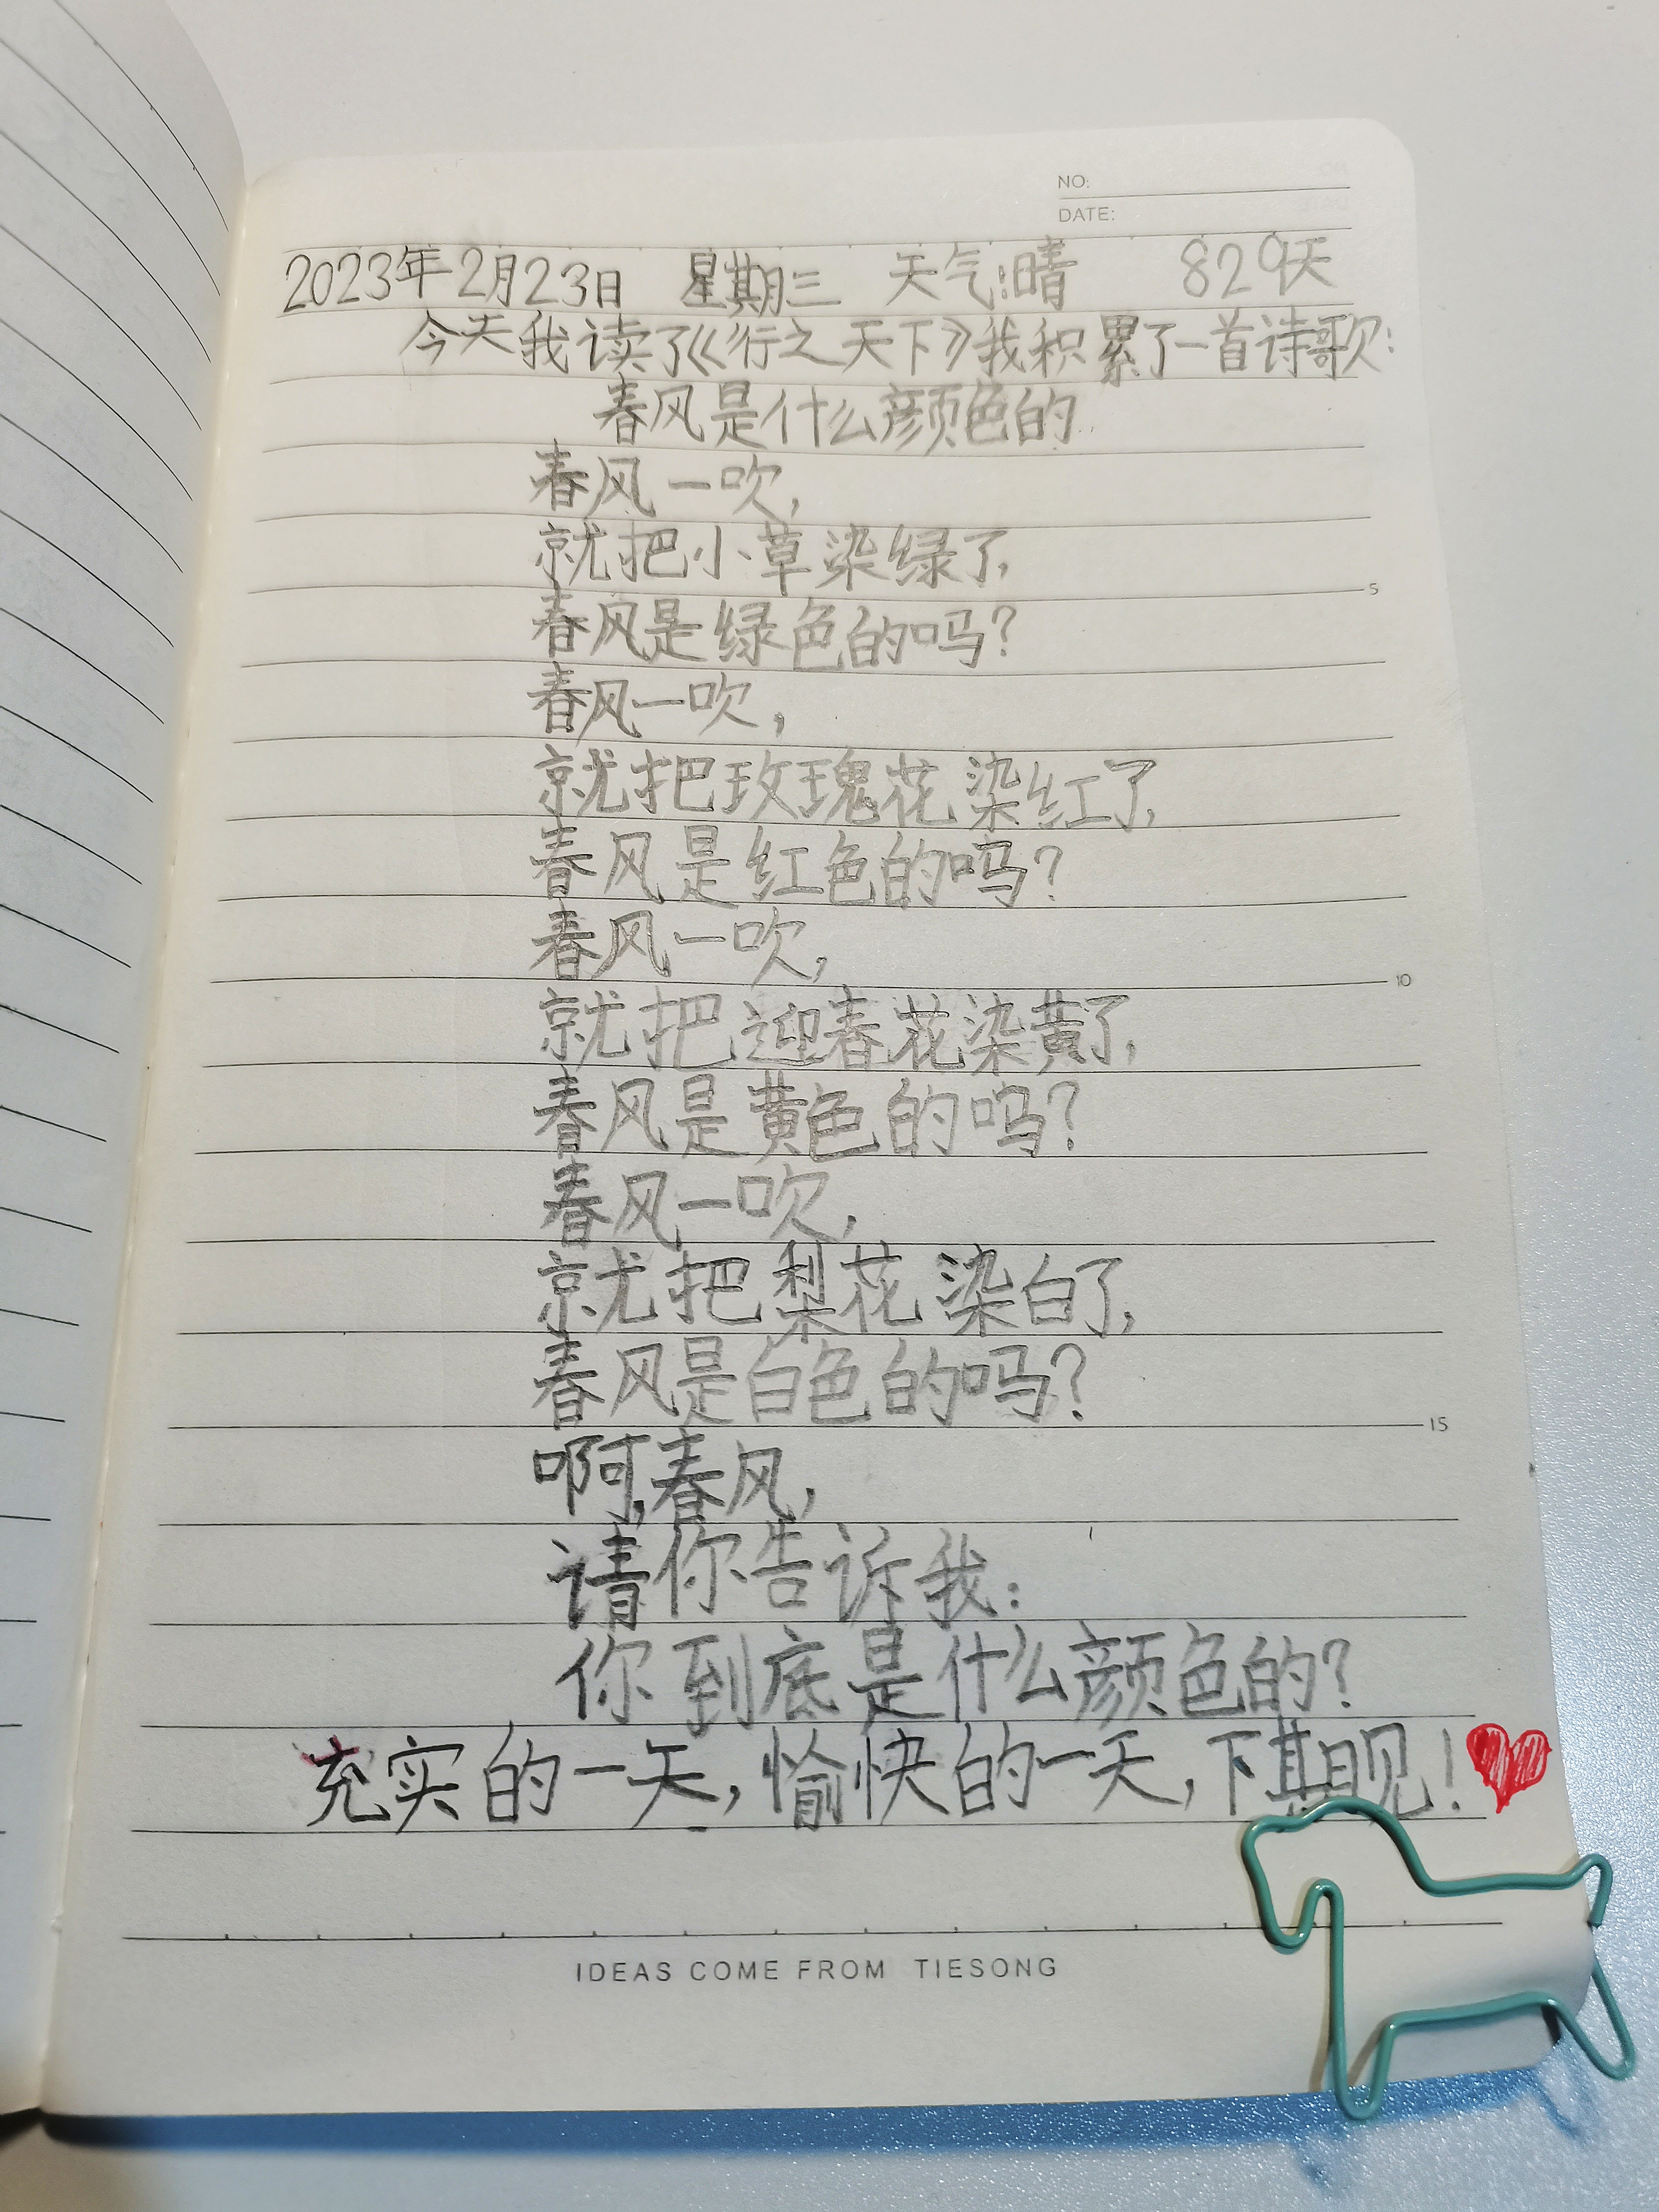 NO:
DATE:
2023年2月23日 星期三 天气:晴 829天
今天我读了《行之天下》我积累了一首诗歌:
春风是什么颜色的
春风一吹,
就把小草染绿了,
春风是绿色的吗?
春风一吹,
就把玫瑰花染红了,
春风是红色的吗?
春风一吹,
就把迎春花染黄了,
春风是黄色的吗?
春风一吹,
就把梨花染白了,
春风是白色的吗?
啊,春风,
请你告诉我:
你到底是什么颜色的?
充实的一天,愉快的一天,下期见!
5
10
15
IDEAS COME FROM TIESONG